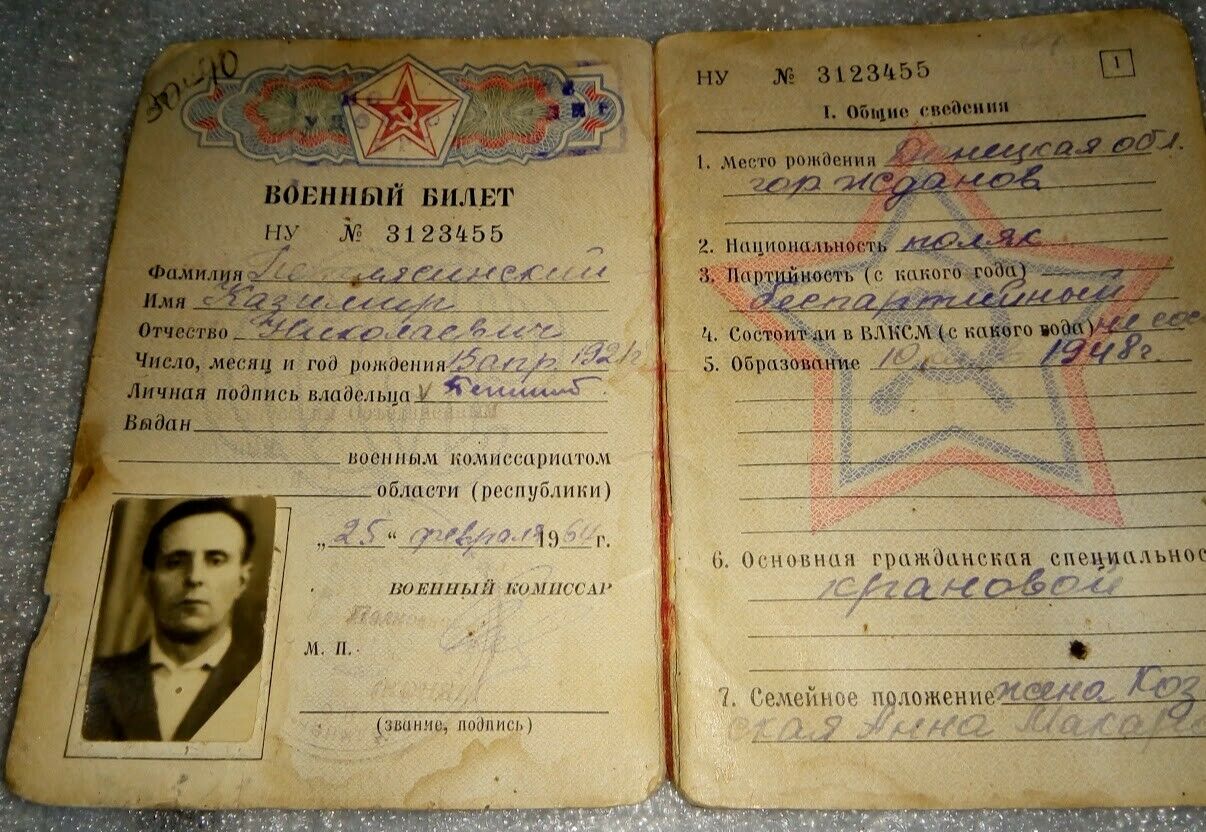 ВОЕННЫЙ БИЛЕТ
НУ № 3123455
Фамилия
Имя Казимир
Отчество Николаевич
Число, месяц и год рождения 13 апр. 1921г
Личная подпись владельца
Выдан
военным комиссариатом
области (республики)
„25“ февраля 1964 г.
ВОЕННЫЙ КОМИССАР
М. П.
(звание, подпись)
НУ № 3123455
1
I. Общие сведения
1. Место рождения Донецкая обл.
гор Жданов
2. Национальность поляк
3. Партийность (с какого года)
беспартийный
4. Состоит ли в ВЛКСМ (с какого года) не сос
5. Образование 10 1948г.
6. Основная гражданская специальнос
крановой
7. Семейное положение жена Коз
ская Анна Макар